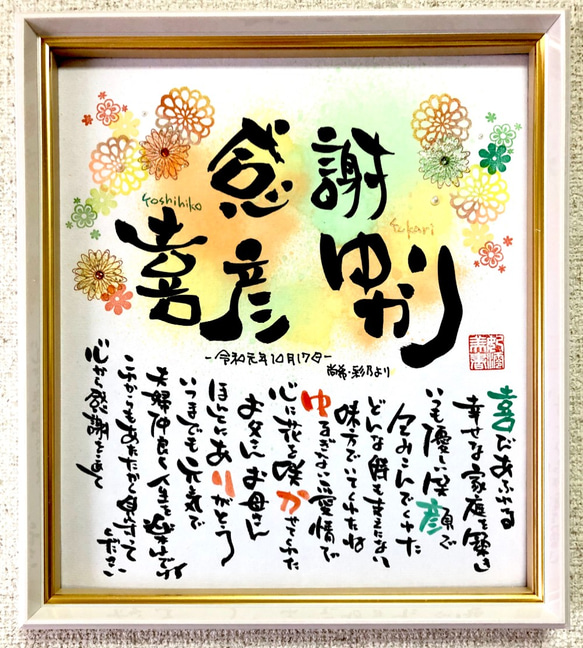 感謝
Yoshihiko
Yukari
喜彦
ゆかり
-令和元年10月17日-
尚希・彩乃より
喜びあふれる
幸せな家庭を築き
いつも優しい笑顔で
包みこんでくれた
どんな時もまよわない
味方でいてくれたね
ゆるぎない愛情で
心に花を咲かせてくれた
お父さんお母さん
ほんとにありがとう
いつまでも元気で
夫婦仲良く人生を楽しんで
これからもあたたかく見守ってください
心から感謝をこめて